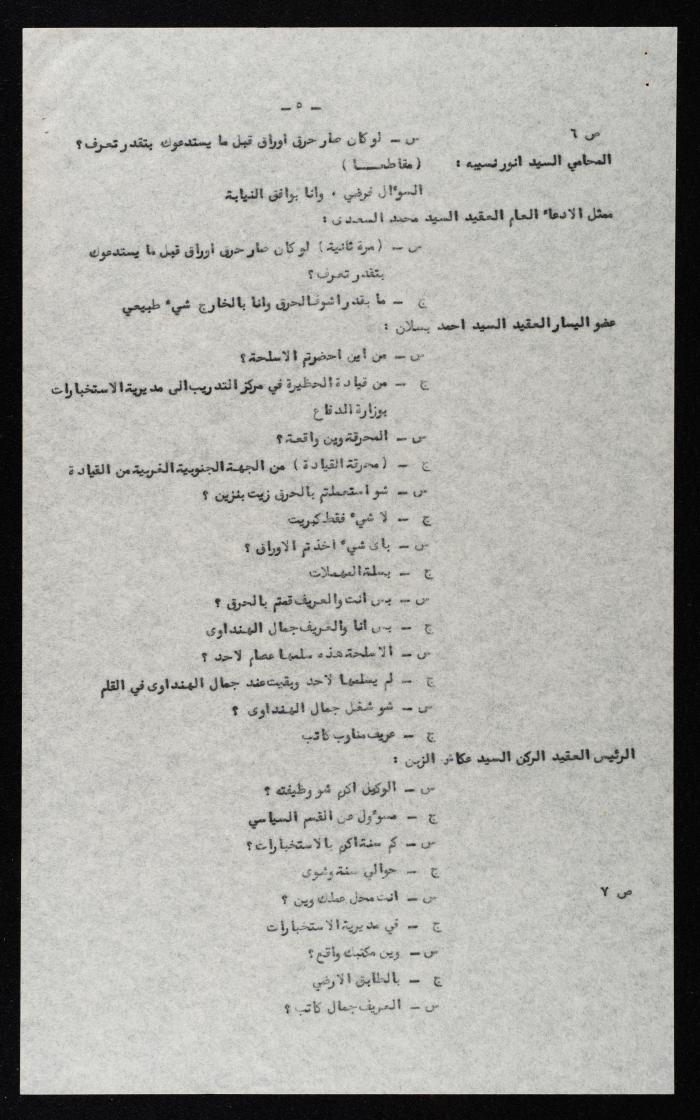 — ٥ —
ص ٦
س — لو كان صار حرق اوراق قبل ما يستدعوك بتقدر تعرف؟
المحامي السيد انور نسيبه : (مقاطعـــا)
السوءال فرضي ، وانا بوافق النيابة
ممثل الادعاء العام العقيد السيد محمد السعدى :
س — (مرة ثانية) لو كان صار حرق اوراق قبل ما يستدعوك
بتقدر تعرف؟
ج — ما بقدر اشوف الحرق وانا بالخارج شيء طبيعي
عضو اليسار العقيد السيد احمد بسلان :
س — من اين احضرتم الاسلحة؟
ج — من قيادة الحظيرة في مركز التدريب الى مديرية الاستخبارات
بوزارة الدفاع
س — المحرقة وين واقعة؟
ج — (محرقة القيادة) من الجهة الجنوبية الغربية من القيادة
س — شو استعملتم بالحرق زيت بنزين ؟
ج — لا شيء فقط كبريت
س — باى شيء اخذتم الاوراق ؟
ج — بسلة المهملات
س — بس انت والعريف قمتم بالحرق ؟
ج — بس انا والعريف جمال الهنداوى
س — الاسلحة هذه سلمها عصام لاحد ؟
ج — لم يسلمها لاحد وبقيت عند جمال الهنداوى في القلم
س — شو شغل جمال الهنداوى ؟
ج — عريف مناوب كاتب
الرئيس العقيد الركن السيد عكاش الزبن :
س — الوكيل اكرم شو وظيفته ؟
ج — مسوءول عن القسم السياسي
س — كم سنة اكرم بالاستخبارات؟
ج — حوالي سنة وشوى
ص ٧
س — انت محل عملك وين ؟
ج — في مديرية الاستخبارات
س — وين مكتبك واقع؟
ج — بالطابق الارضي
س — العريف جمال كاتب؟